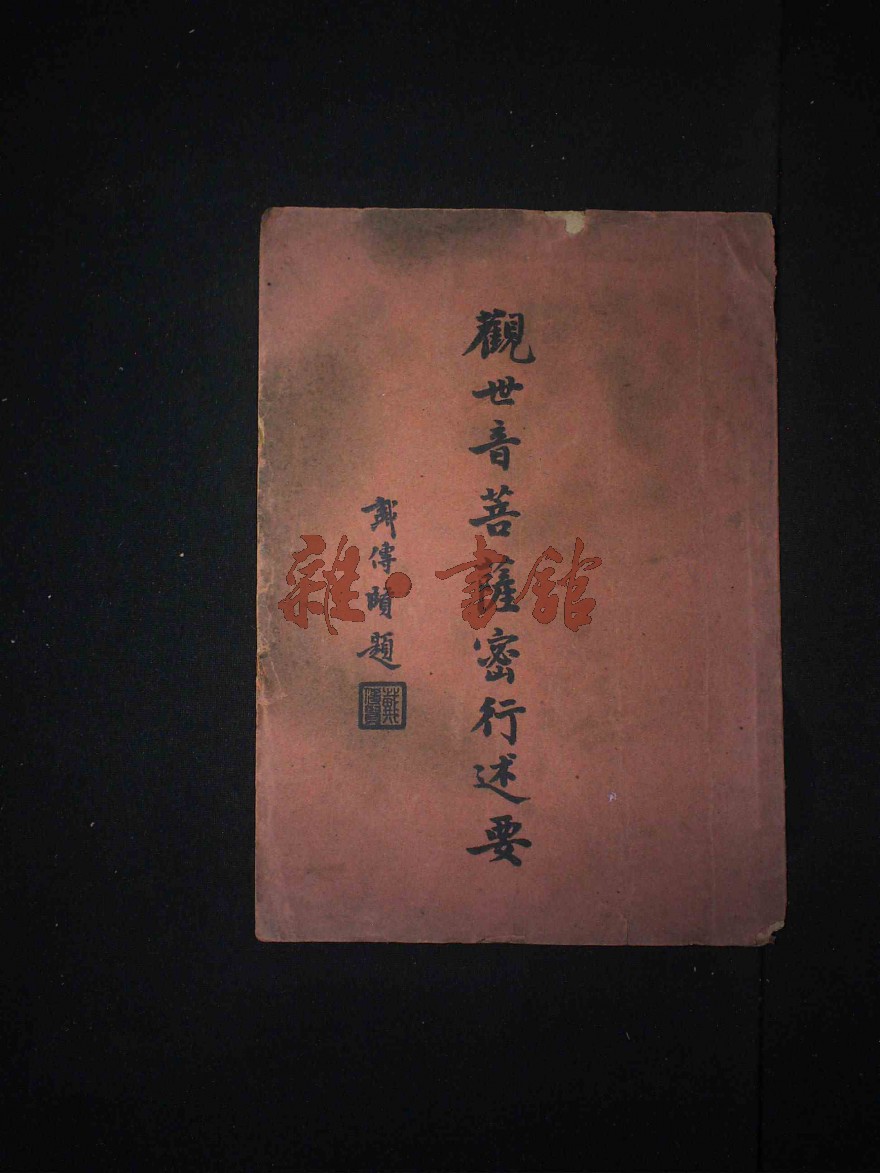 觀世音菩薩密行述要
戴傳賢題
雜·書館